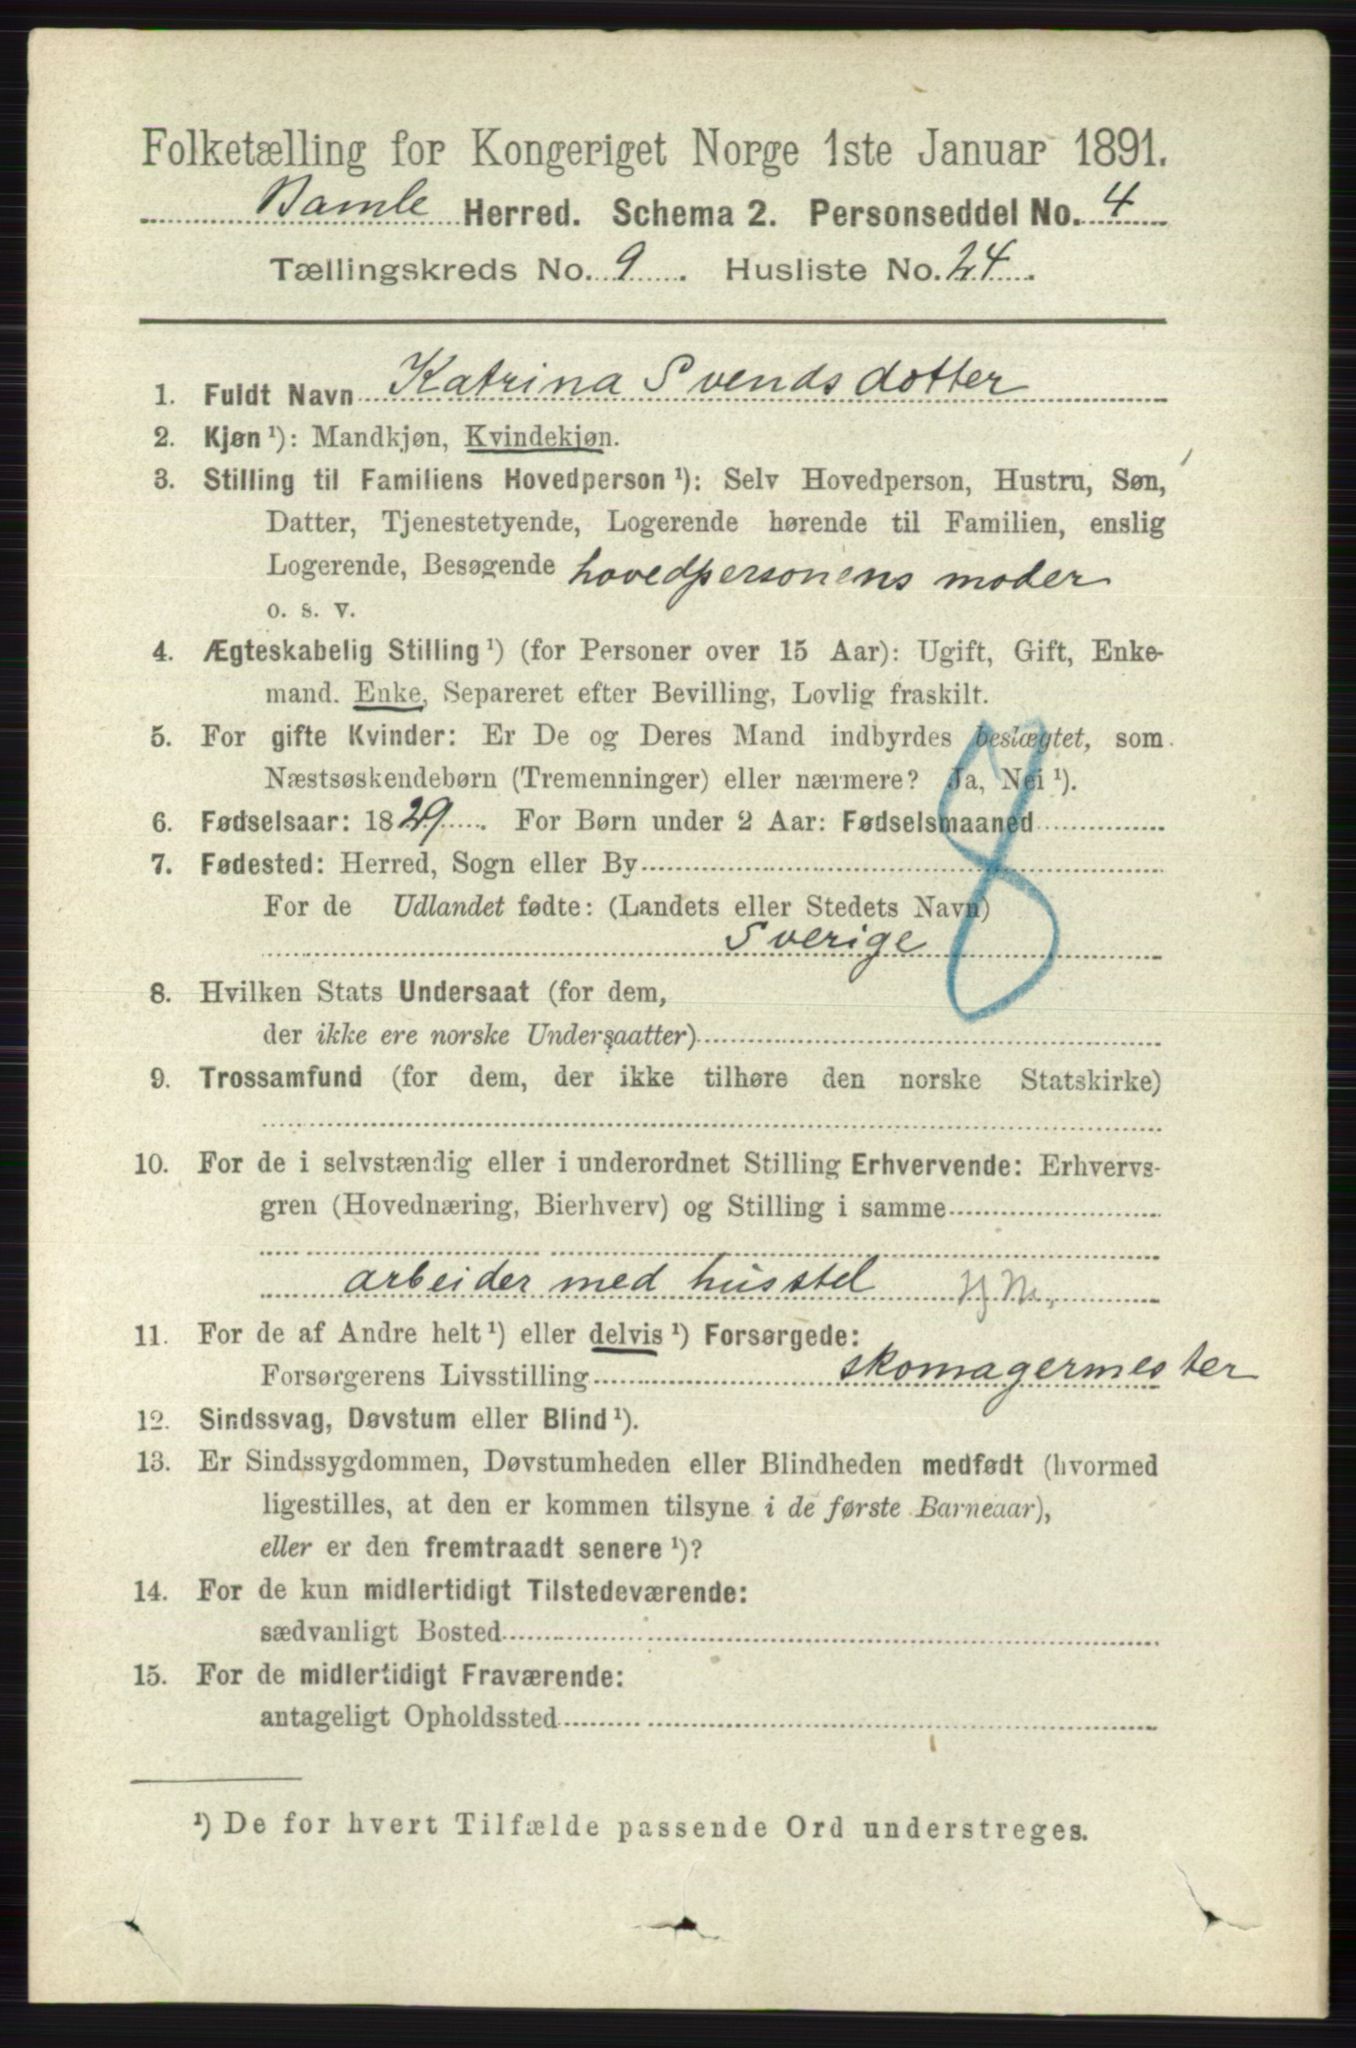 Folketælling for Kongeriget Norge 1ste Januar 1891.
Bamle Herred. Schema 2. Personseddel No. 4
Tællingskreds No. 9. Husliste No. 24.
1. Fuldt Navn Katrina Svendsdotter
2. Kjøn ¹): Mandkjøn, Kvindekjøn.
3. Stilling til Familiens Hovedperson ¹): Selv Hovedperson, Hustru, Søn,
Datter, Tjenestetyende, Logerende hørende til Familien, enslig
Logerende, Besøgende hovedpersonens moder
o. s. v.
4. Ægteskabelig Stilling ¹) (for Personer over 15 Aar): Ugift, Gift, Enke-
mand. Enke, Separeret efter Bevilling, Lovlig fraskilt.
5. For gifte Kvinder: Er De og Deres Mand indbyrdes beslægtet, som
Næstsøskendebørn (Tremenninger) eller nærmere? Ja, Nei ¹).
6. Fødselsaar: 1829. For Børn under 2 Aar: Fødselsmaaned
7. Fødested: Herred, Sogn eller By
8
For de Udlandet fødte: (Landets eller Stedets Navn)
Sverige
8. Hvilken Stats Undersaat (for dem,
der ikke ere norske Undersaatter)
9. Trossamfund (for dem, der ikke tilhøre den norske Statskirke)
10. For de i selvstændig eller i underordnet Stilling Erhvervende: Erhvervs-
gren (Hovednæring, Bierhverv) og Stilling i samme
arbeider med husstel
11. For de af Andre helt ¹) eller delvis ¹) Forsørgede:
Forsørgerens Livsstilling skomagermester
12. Sindssvag, Døvstum eller Blind ¹).
13. Er Sindssygdommen, Døvstumheden eller Blindheden medfødt (hvormed
ligestilles, at den er kommen tilsyne i de første Barneaar),
eller er den fremtraadt senere ¹)?
14. For de kun midlertidigt Tilstedeværende:
sædvanligt Bosted
15. For de midlertidigt Fraværende:
antageligt Opholdssted
¹) De for hvert Tilfælde passende Ord understreges.